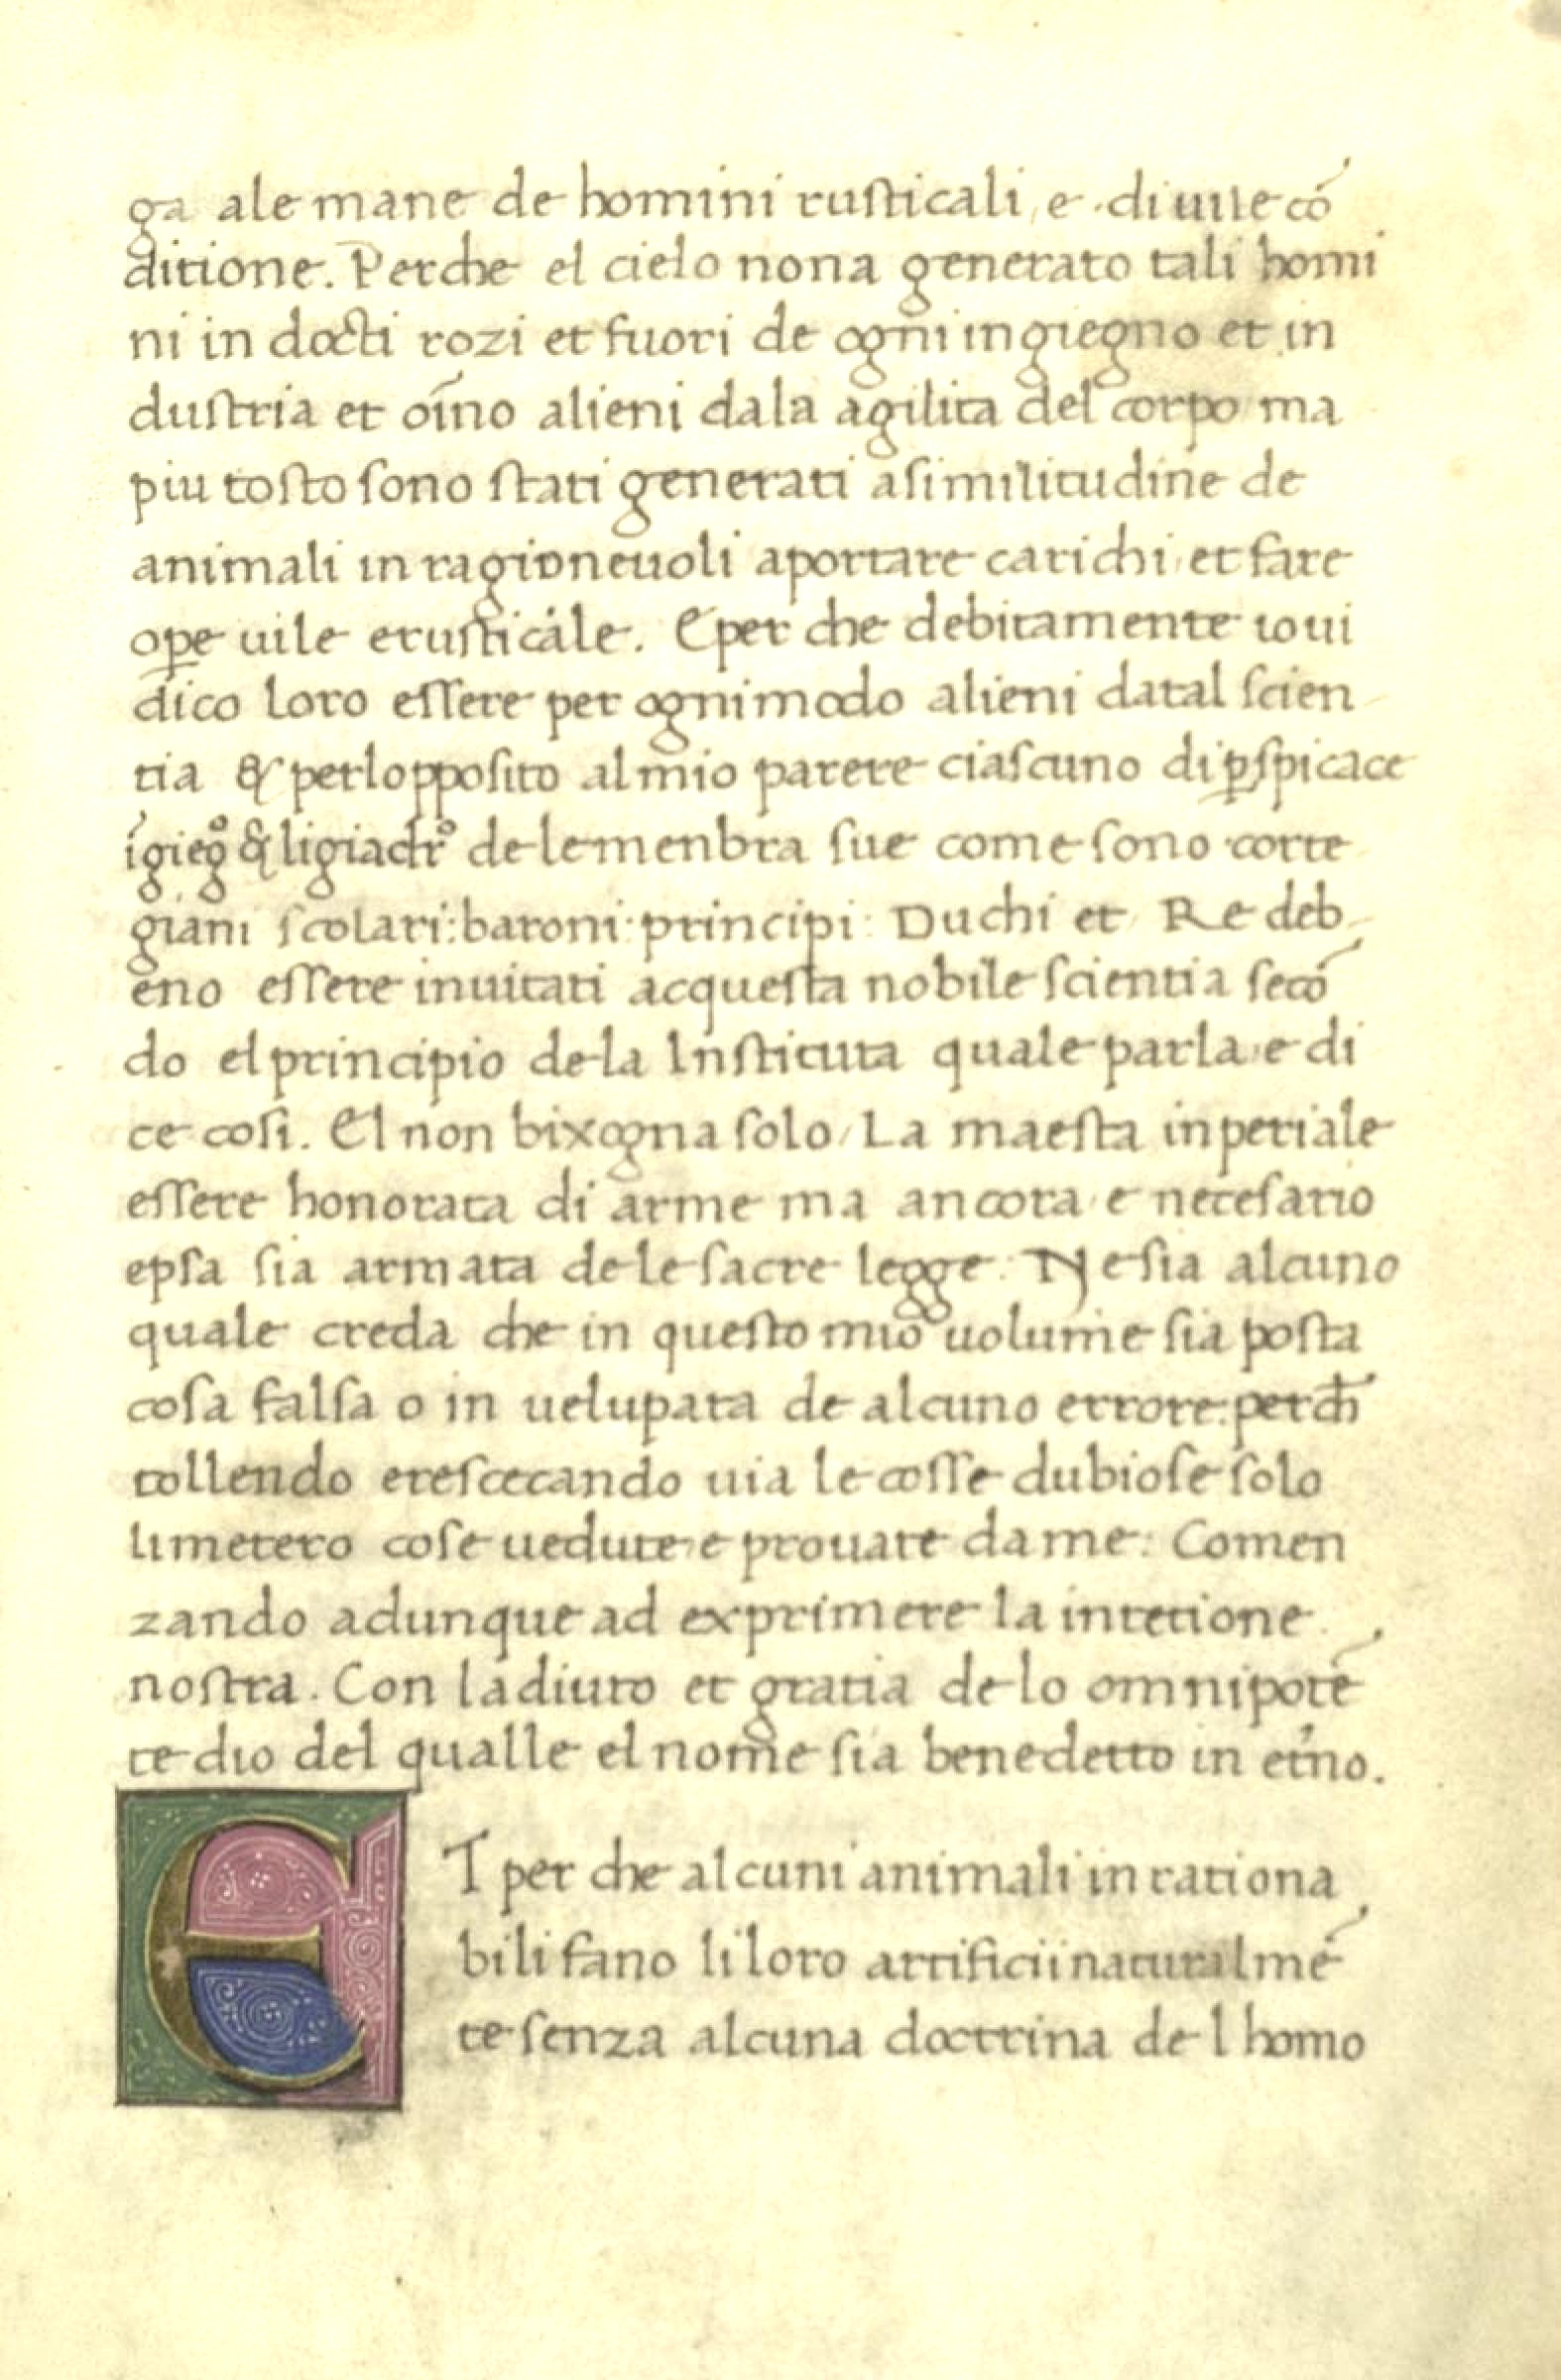 ga ale mane de homini rusticali, e di uile cō
ditione. Perche el cielo nona generato tali homi
ni in docti rozi et fuori de ogni ingiegno et in
dustria et oīno alieni dala agilita del corpo ma
piu tosto sono stati generati asimilitudine de
animali in ragioneuoli aportare carichi et fare
oꝑe uile erusticale. Eper che debitamente ioui
dico loro essere per ognimodo alieni datal scien
tia & perlopposito almio parere ciascuno di ꝑspicace
īgiegº & ligiadrº de le menbra sue come sono corte
giani scolari: baroni: principi: Duchi et Re deb
eno essere inuitati acquesta nobile scientia secō
do el principio de la Instituta quale parla e di
ce cosi. El non bixogna solo / La maesta inperiale
essere honorata di arme ma ancora e necesario
epsa sia armata de le sacre legge. Ne sia alcuno
quale creda che in questo mio uolume sia posta
cosa falsa o in uelupata de alcuno errore: perch̄
tollendo erescecando uia le cosse dubiose solo
limetero cose uedute e prouate da me: Comen
zando adunque ad exprimere la intetione
nostra. Con ladiuto et gratia de lo omnipotē
te dio del qualle el nome sia benedetto in et̄no.
ET per che alcuni animali in rationa
bili fano li loro artificii naturalmē
te senza alcuna doctrina de l homo